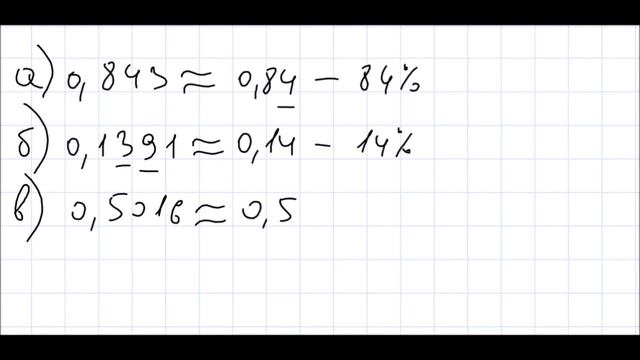 а) 0,843 ≈ 0,84 — 84%
б) 0,1391 ≈ 0,14 — 14%
в) 0,5016 ≈ 0,5